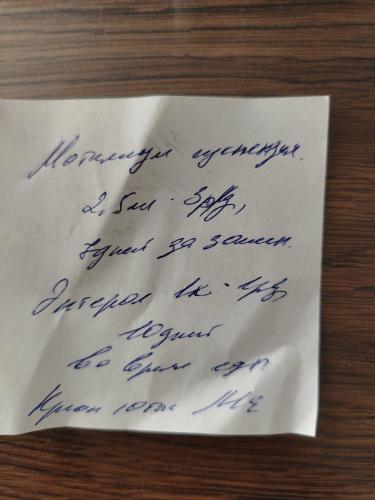 Мотилиум суспензия.
2,5мл · 3р/д,
7дней за 30мин.
Энтерол 1к · 1р/д
10дней
во время еды
Креон 10тыс №